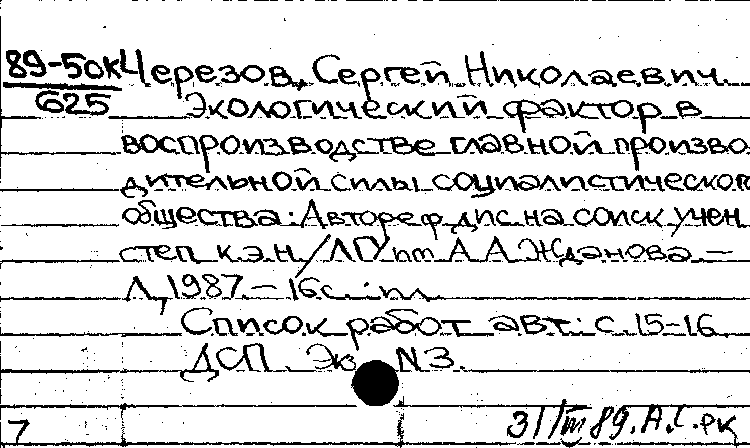 89-5ок Черезов, Сергей Николаевич.
625 Экологический фактор в
воспроизводстве главной произво
дительной силы социалистического
общества: Автореф дис. на соиск учен
степ к.э.н./ЛГУ им А А Жданова –
Л, 1987. – 16с. : ил.
Список работ авт.: с. 15-16
ДСП. Экз N3.
7